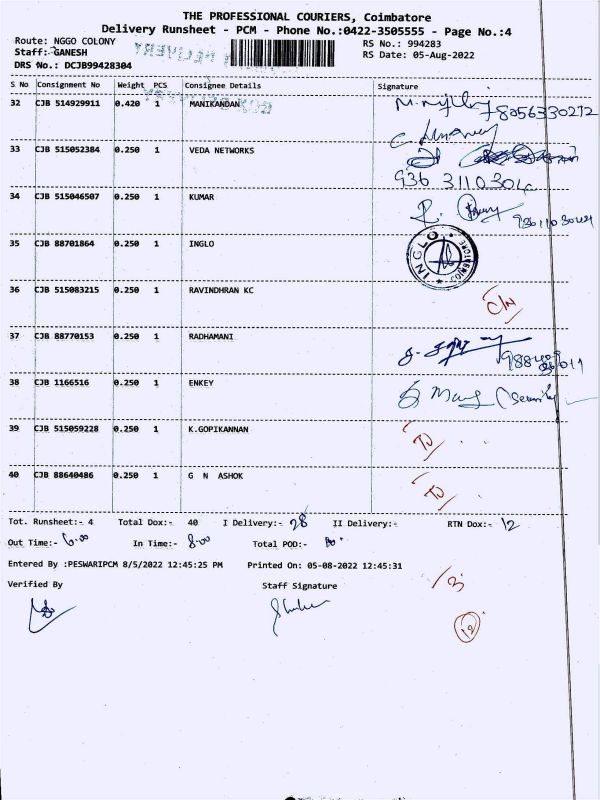 THE PROFESSIONAL COURIERS, Coimbatore
Delivery Runsheet - PCM - Phone No.:0422-3505555 - Page No.:4
Route: NGGO COLONY
RS No.: 994283
Staff: GANESH
RS Date: 05-Aug-2022
DRS No.: DCJB99428304
S No Consignment No Weight PCS Consignee Details Signature
32 CJB 514929911 0.420 1 MANIKANDAN
8056330272
33 CJB 515052384 0.250 1 VEDA NETWORKS
936 3110304
34 CJB 515046507 0.250 1 KUMAR
35 CJB 88701864 0.250 1 INGLO
INGLO
36 CJB 515083215 0.250 1 RAVINDHRAN KC
C/N
37 CJB 88770153 0.250 1 RADHAMANI
38 CJB 1166516 0.250 1 ENKEY
39 CJB 515059228 0.250 1 K.GOPIKANNAN
40 CJB 88640486 0.250 1 G N ASHOK
Tot. Runsheet:- 4 Total Dox:- 40 I Delivery:- 28 II Delivery:- RTN Dox:- 12
Out Time:- 6.00 In Time:- 8.00 Total POD:-
Entered By :PESWARIPCM 8/5/2022 12:45:25 PM Printed On: 05-08-2022 12:45:31
Verified By Staff Signature
12